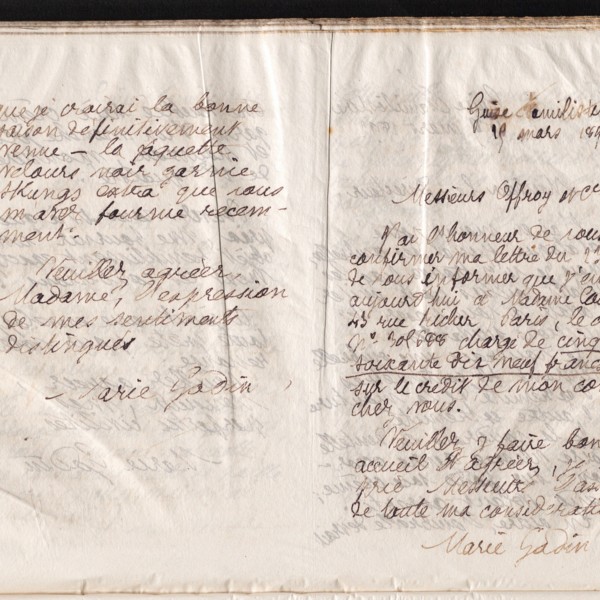 que je croirai la bonne
saison définitivement
venue — la jaquette
velours noir garnie
skungs extra que vous
m'avez fournie récem-
ment.
Veuillez agréer,
Madame, l'expression
de mes sentiments
distingués
Marie Godin
Guise Familistère
19 mars 18
Messieurs Offroy et Cie
J'ai l'honneur de vous
confirmer ma lettre du
de vous informer que j'
aujourd'hui à Madame
43 rue Richer Paris, le
chargé de cinq
soixante dix neuf francs
sur le crédit de mon
chez vous.
Veuillez y faire bon
accueil et agréer, je
prie Messieurs
de toute ma considérati
Marie Godin